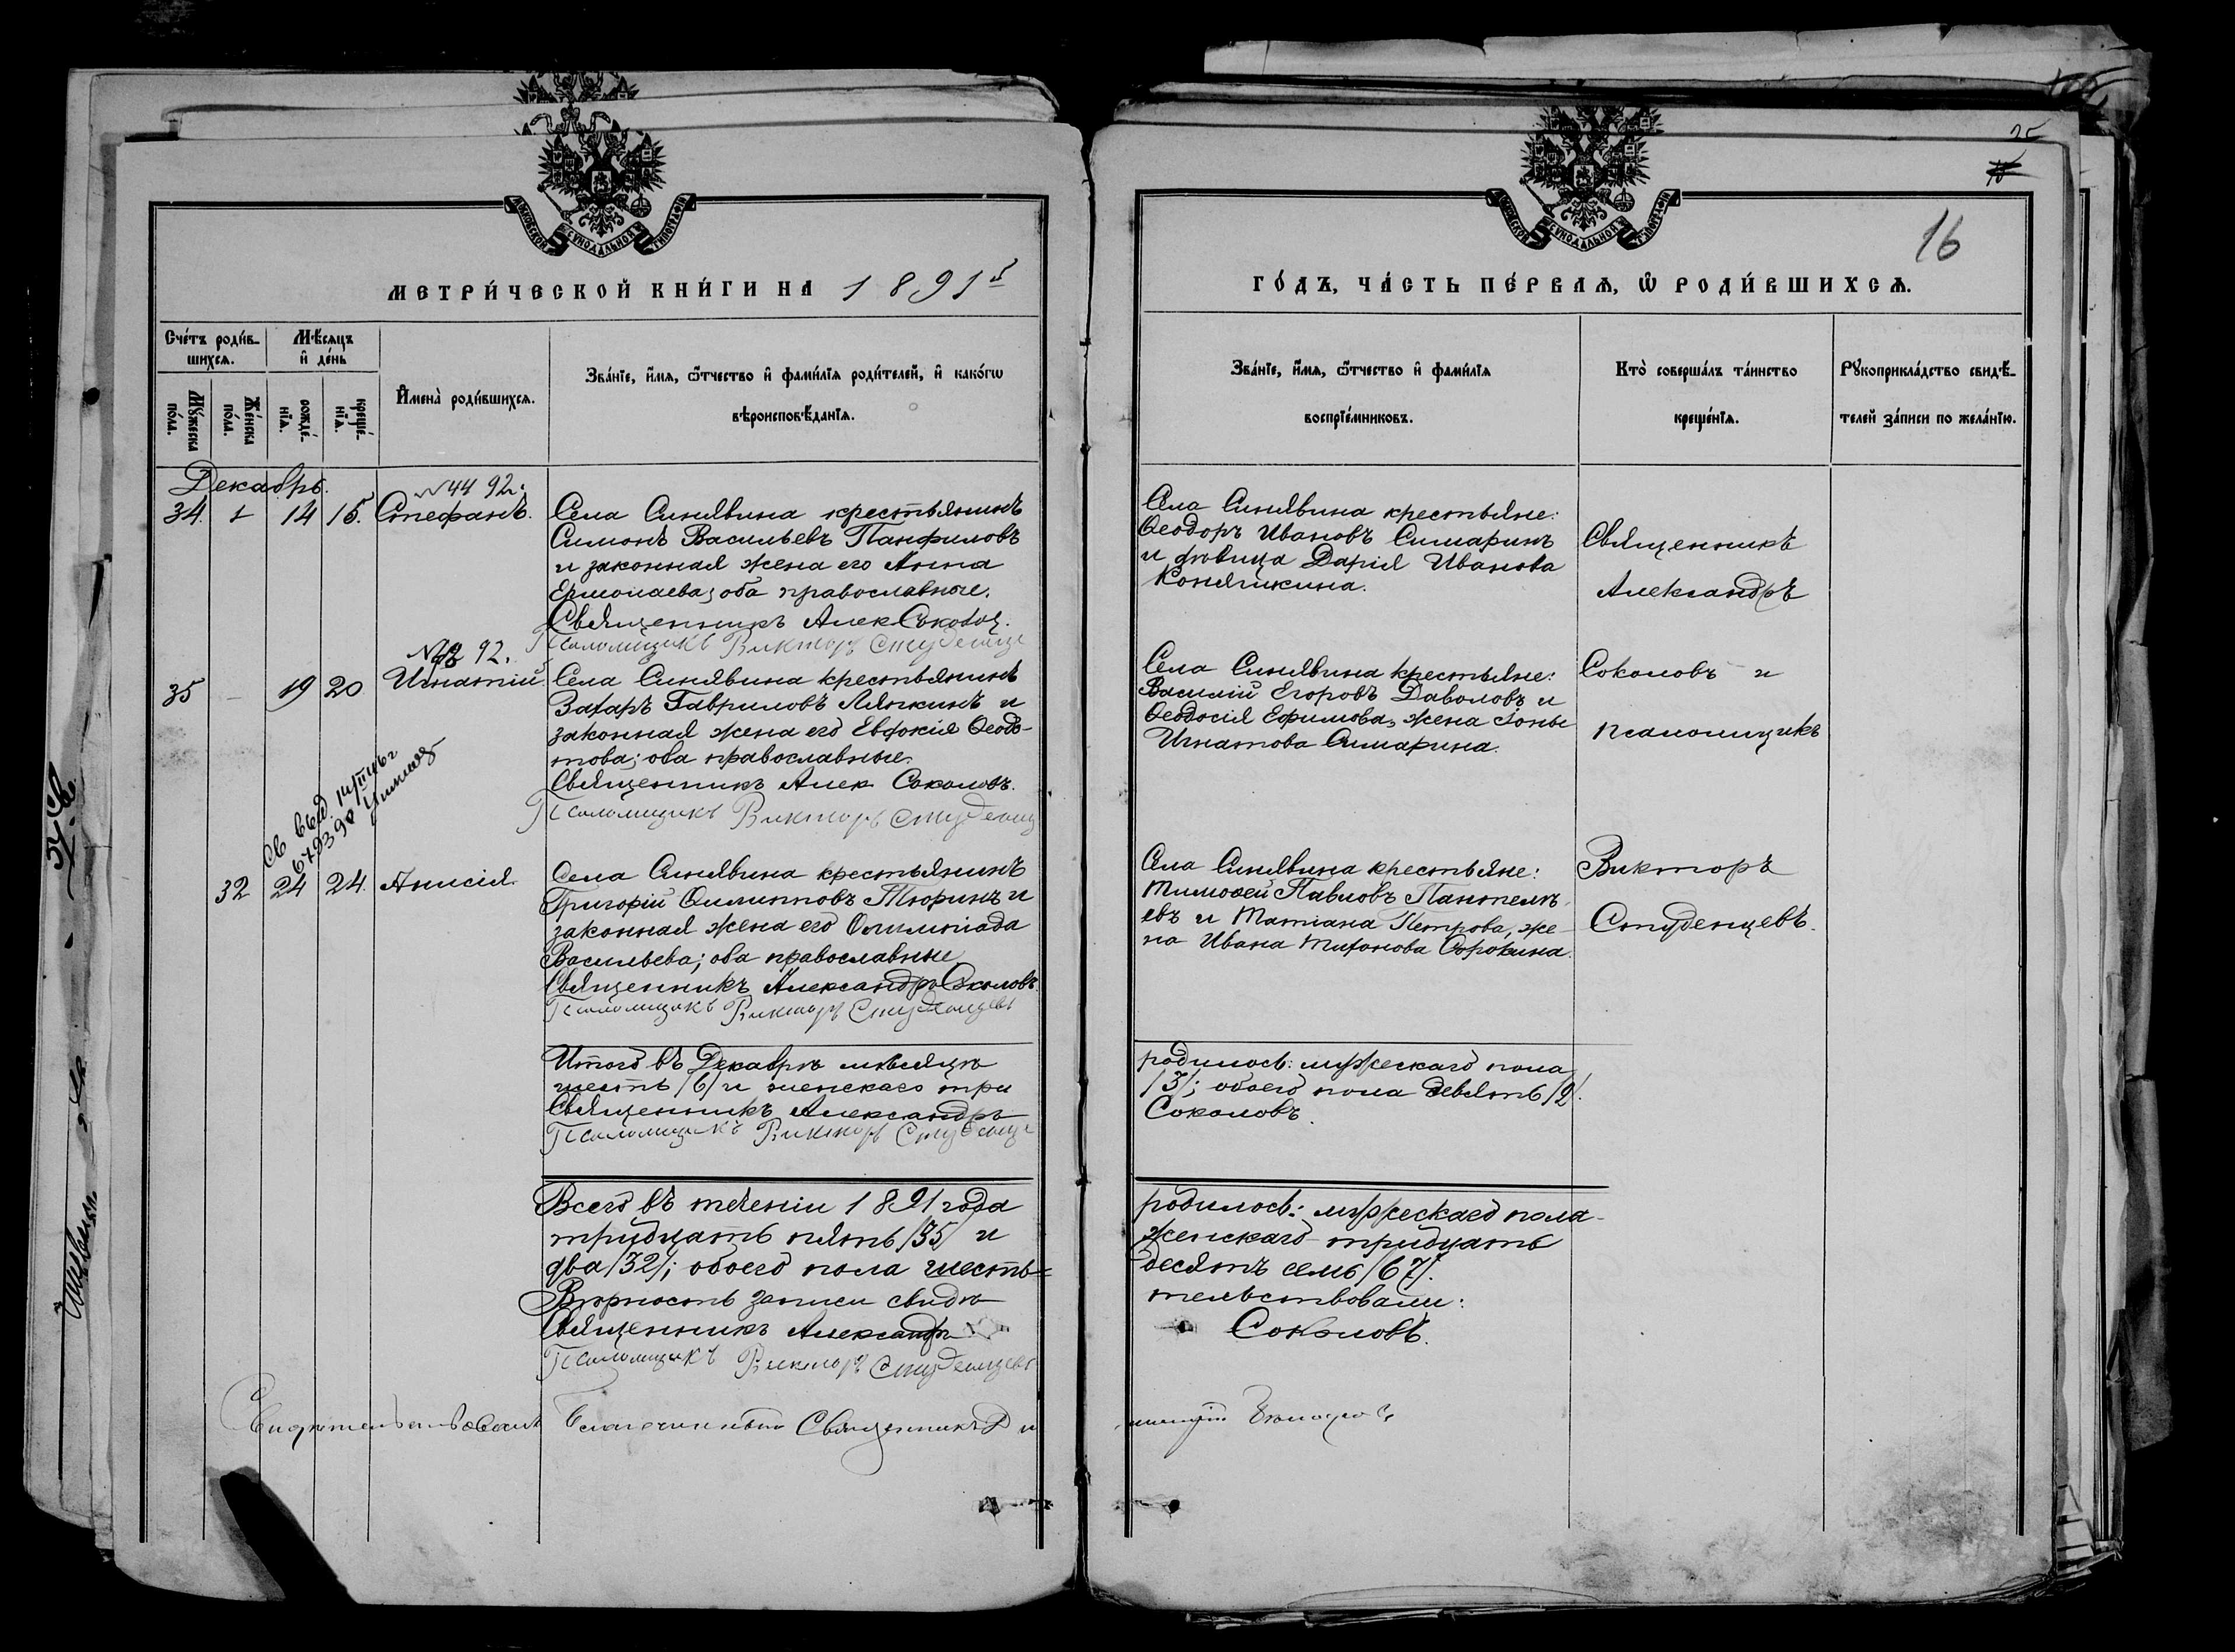 МОСКОВСКОЙ СѴНОДАЛЬНОЙ ТИПОГРАФІИ
МЕТРИ́ЧЕСКОЙ КНИ́ГИ НА 1891й
Сче́тъ роди́вшихсѧ.
Мѣ́сѧцъ и҆ де́нь
Мꙋ́жеска по́ла.
Же́нска по́ла.
рожде́нїѧ.
креще́нїѧ.
И҆мена̀ роди́вшихсѧ.
Зва́нїе, и҆́мѧ, ѻ҆́тчество и҆ фами́лїѧ роди́телей, и҆ како́гѡ
вѣроисповѣ́данїѧ.
Декабрь.
№44 92г.
34. 1 14 15. Стефанъ.
Села Синявина крестьянинъ
Симонъ Васильевъ Панфиловъ
и законная жена его Анна
Ермолаева; оба православные.
Священникъ Алек Соколов.
Псаломщикъ Викторъ Студенце
92.
35 – 19 20 Игнатій
Села Синявина крестьянинъ
Захаръ Гавриловъ Лячкинъ и
законная жена его Евдокія Ѳеодо-
това; оба православные.
Священникъ Алек Соколовъ.
Псаломщикъ Викторъ Студенц
Св выд.
32 24 24. Анисія.
Села Синявина крестьянинъ
Григорій Филипповъ Тюринъ и
законная жена его Олимпіада
Васильева; оба православные
Священникъ Александръ Соколовъ.
Псаломщикъ Викторъ Студенцевъ
Итого въ Декабрѣ мѣсяцѣ
шесть /6/ и женскаго три
Священникъ Александръ
Псаломщикъ Викторъ Студенце
Всего въ теченіи 1891 года
тридцать пять /35/ и
два /32/; обоего пола шесть=
Вѣрность записи свидѣ
Священникъ Александръ
Псаломщикъ Викторъ Студенцевъ
Свидѣтельствовалъ Благочинный Священникъ Ди
МОСКОВСКОЙ СѴНОДАЛЬНОЙ ТИПОГРАФІИ
16
ГО́ДЪ, ЧА́СТЬ ПЕ́РВАѦ, Ѡ҆ РОДИ́ВШИХСѦ.
Зва́нїе, и҆́мѧ, ѻ҆́тчество и҆ фами́лїѧ
воспрїе́мниковъ.
Кто̀ соверша́лъ та́инство
креще́нїѧ.
Рꙋкоприкла́дство свидѣ́-
телей за́писи по жела́нїю.
Села Синявина крестьяне:
Ѳеодоръ Ивановъ Симаринъ
и дѣвица Дарія Иванова
Конячкина.
Священникъ
Александръ
Села Синявина крестьяне:
Василій Егоровъ Даволовъ и
Ѳеодосія Ефимова, жена Іоны
Игнатова Симарина.
Соколовъ и
псаломщикъ
Села Синявина крестьяне:
Тимоѳей Павловъ Пантелѣ-
евъ и Татіана Петрова, же-
на Ивана Тихонова Сорокина.
Викторъ
Студенцевъ.
родилось: мужескаго пола
/3/; обоего пола девять /9/.
Соколовъ.
родилось: мужескаго пола –
женскаго тридцать
десятъ семь /67/.
тельствовали:
Соколовъ.